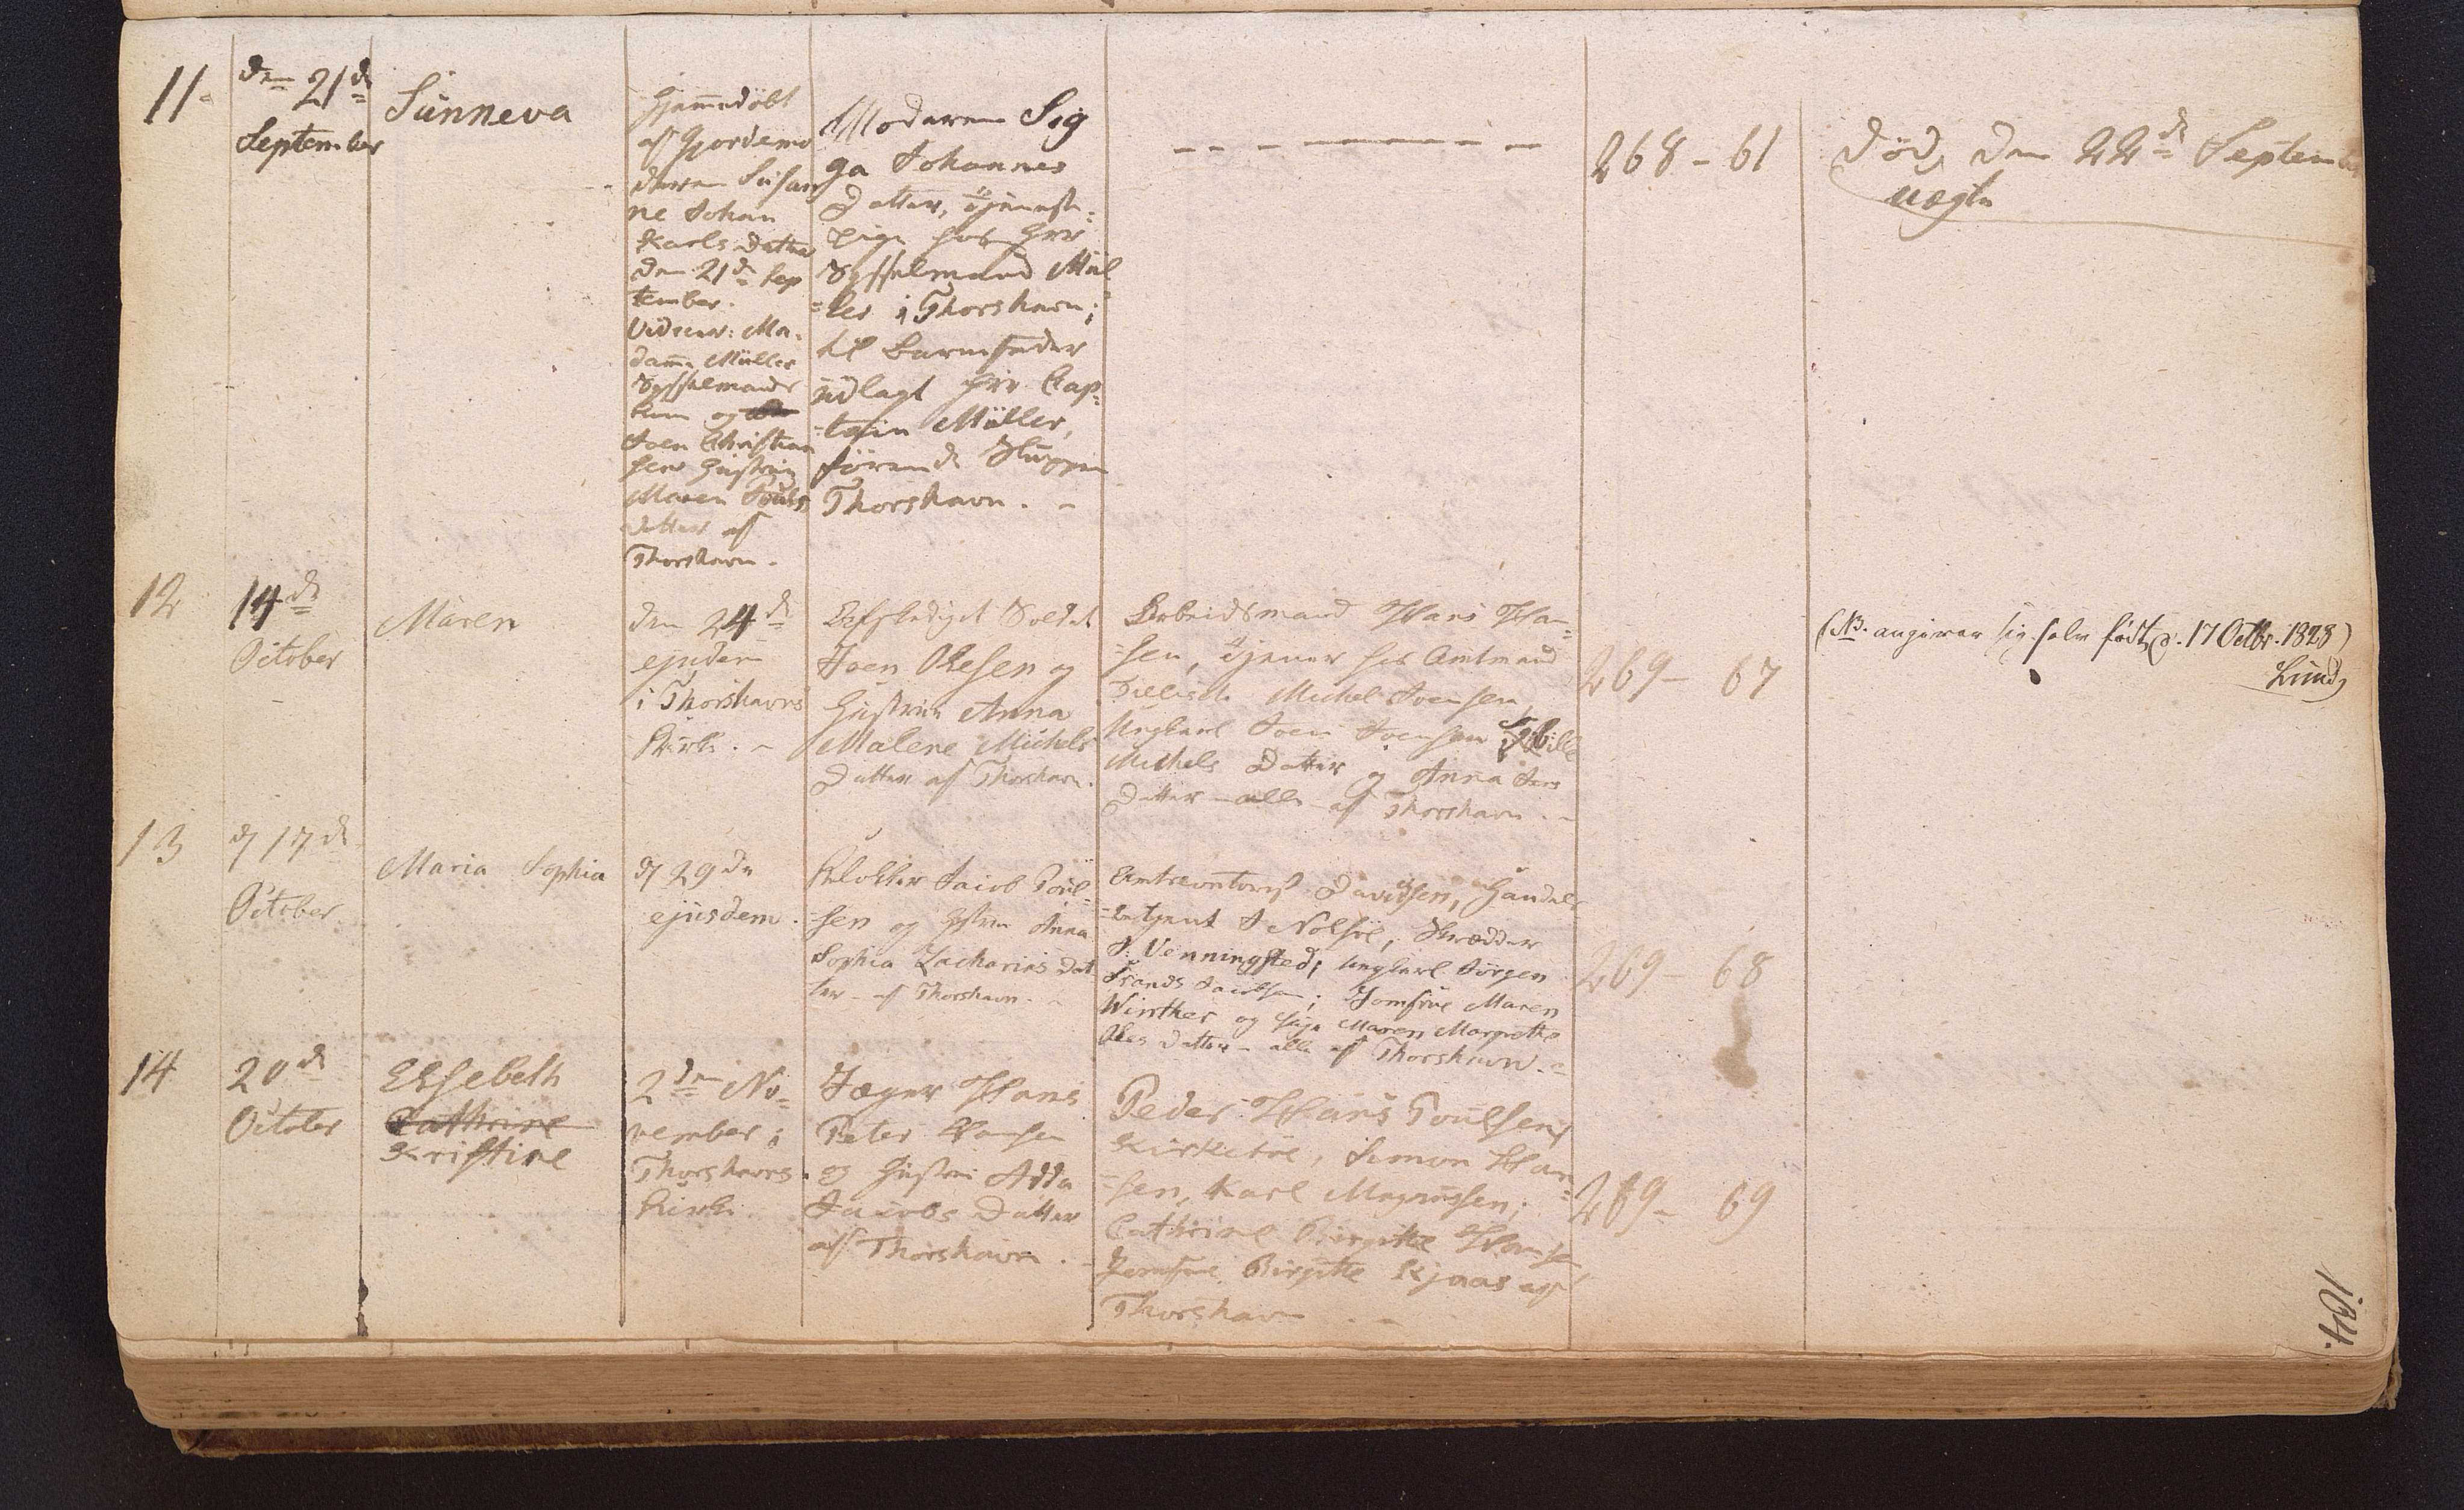 11.
den 21de
September
Sünneva
Hjemmedöbt
af Gjordemo
deren Süsan
ne Johan
Karls Datter
den 21de Sep
tember.
Vidner: Ma-
dame Müller
Sysselmands
og
Joen Christian
sens Hustru
Maren Pouls
datter af
Thorshavn.
Moderen Sig
ga Johannes
Datter, Tjeneste-
pige hos Hrr
Sysselmand Mül
=ler i Thorshavn;
til Barnefader
udlagt Hrr Cap-
=tain Müller,
förende Sluppen
Thorshavn. -
268 - 61
Död, den 22de September
uægte
12
14de
October
Maren
den 24de
ejusdem
i Thorshavns
Kirke. -
Afskediget Soldat
Joen Olesen og
Hustrue Anna
Malene Michels
Datter af Thorshavn.
Arbeidsmand Hans Han-
=sen, Tjener hos Amtmand
Tillisch Michel Joensen,
Ungkarl Joen Joensen Sibille
Michels Datter og Anna Joens
Datter - alle af Thorshavn. -
269 - 67
(NB. angiver sig selv född d. 17 Octbr. 1828)
Lund
13
d 17de
October
Maria Sophia
d 29de
ejusdem.
Klokker Jacob Poul-
=sen og Hustrue Anna
Sophia Zacharias Dat
ter - af Thorshavn. -
Amtscontorist Davidsen, Handels
=betjent J Nolsöe, Skrædder
J. Venningsted, Ungkarl Jörgen
Frands Jacobsen; Jomfrue Maren
Winther og Pige Maren Margrethe
Oles Datter - alle af Thorshavn. -
269 - 68
14
20de
October
Elsebeth
Cathrine
Kristine
2den No-
vember i
Thorshavns
Kirke.
Jæger Hans
Peter Hansen
og Hustrue Adda
Jacobs Datter
af Thorshavn. -
Peder Hans Poulsen,
Kirketöe, Simon Han-
=sen, Karl Magnussen;
Cathrine Birgitte Hansen
Jomfrue Birgitte Kjaas af
Thorshavn. -
269 - 69
104.